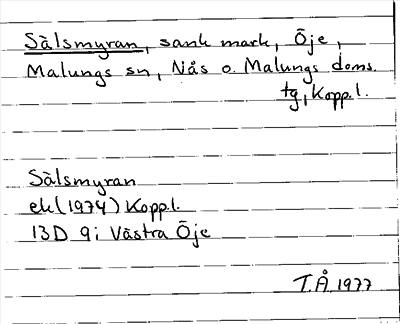 Sälsmyran, sank mark, Öje,
Malungs sn, Nås o. Malungs doms.
tg, Kopp.l.
Sälsmyran
ek (1974) Kopp.l.
13D 9i Västra Öje
T.Å. 1977